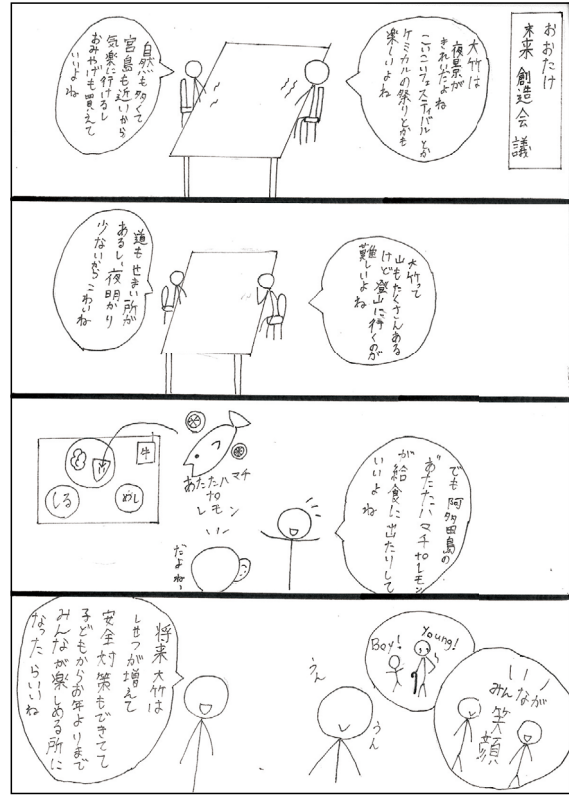 おおたけ
未来創造会議
大竹は
夜景が
きれいだよね
こいこいフェスティバルとか
ケミカルの祭りとかも
楽しいよね
自然も多くて
宮島も近いから
気楽に行けるし
おみやげも買えて
いいよね
大竹って
山もたくさんある
けど登山に行くのが
難しいよね
道もせまい所が
あるし、夜明かり
少ないからこわいね
でも阿多田島の
あたたハマチtoレモン
が給食に出たりして
いいよね
あたたハマチ
to
レモン
牛
しる
めし
だよね
Boy!
Young!
いい
みんなが
笑顔
うん
うん
将来大竹は
しせつが増えて
安全対策もできてて
子どもからお年よりまで
みんなが楽しめる所に
なったらいいね